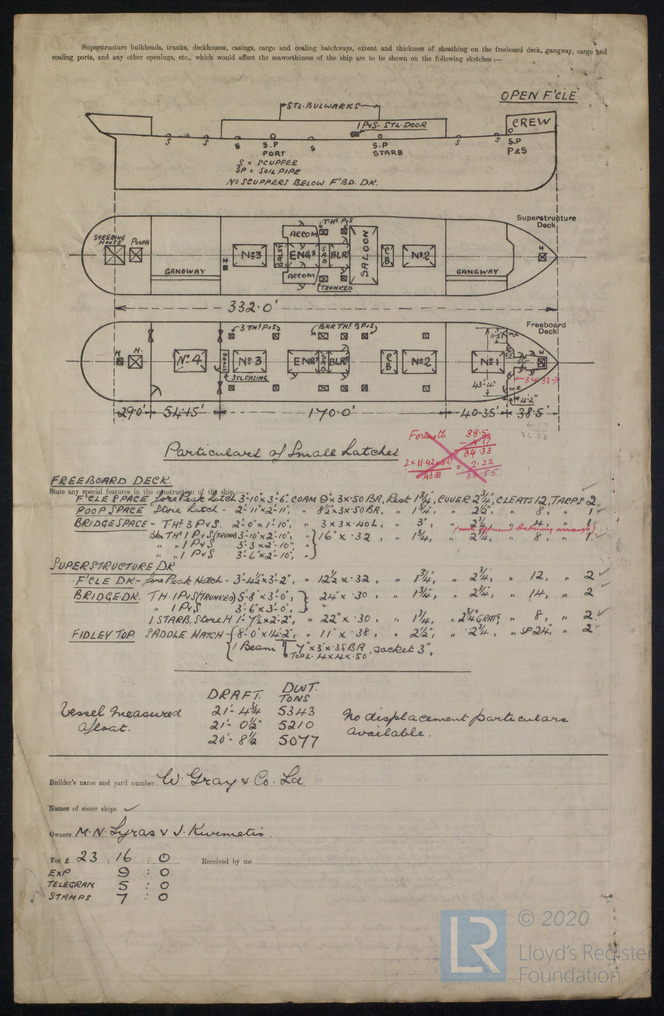 Superstructure bulkheads, trunks, deckhouses, casings, cargo and coaling hatchways, extent and thickness of sheathing on the freeboard deck, gangway, cargo and
coaling ports, and any other openings, etc., which would affect the seaworthiness of the ship are to be shown on the following sketches :—
OPEN F'CLE
STL. BULWARKS
1 P&S. STL. DOOR
CREW
S S S S.P PORT S S.P STARB S S S.P P&S
S = SCUPPER
SP = SOIL PIPE
NO SCUPPERS BELOW F'BD. DK.
Superstructure Deck
STEERING HOUSE
POOP H
GANGWAY
H
No 3
ACCOM
ENGS
ACCOM
BLR
T.H. P&S
TRUNKED
SALOON
C B
No 2
GANGWAY
H
332.0'
Freeboard Deck
H H
No 4
No 3
3 TH! P&S
STL CASING
ENGS
BLR
BKR TH! 3 P&S
C B
No 2
No 1
43'-4"
H
34.33
29.0' 54.15' 170.0' 40.35' 38.5'
Particulars of Small Hatches
38.5
34.33
FREEBOARD DECK.
State any special features in the construction of the ship
F'CLE SPACE Fore Peak Hatch 3'-10"x3'-6", COAM 9"x3x50 BR, Rest 1¾", COVER 2¾", CLEATS 12, TARPS 2
POOP SPACE Store Hatch - 2'-11"x2'-11", " 8½"x3x50 BR, " 1¾", " 2½", " 8, " 1
BRIDGE SPACE - TH! 3 P&S. 2'-0"x1'-10", " 3x3x40L, " 3",
Bkr TH! 1 P&S (TRUNKED) 3'-10"x2'-10", " 16"x.32, " 1¾", " 2¾" " 8, "
" " 1 P&S 3'-3"x2'-10", "
" " 1 P&S 3'-6"x2'-10", "
SUPERSTRUCTURE DK
F'CLE DK - Fore Peak Hatch - 3'-4½"x3'-2", " 12½"x.32, " 1¾", " 2¾", " 12, " 2
BRIDGE DK. T.H. 1 P&S (TRUNKED) 5'-8"x3'-0", " 24"x.30, " 1¾", " 2¾", " 14, " 2
" 1 P&S 3'-6"x3'-0", "
1 STARB. Store H 1'-7½"x2'-2", " 22"x.30, " 1¾, " 2¾" GRAT, " 8, " 2
FIDLEY TOP SADDLE HATCH - 8'-0"x14'-2", " 11"x.38, " 2½", " 2¾, " SP 24", " 2
1 Beam 7"x3"x.35 BR, socket 3",
TOP L 4x4x.50
DRAFT. DWT. TONS
Vessel measured afloat.
21'- 4¾ 5343
21'- 0½" 5210
20'- 8½ 5077
No displacement particulars available.
Builder's name and yard number W. Gray & Co. Ld.
Names of sister ships ✓
Owners M. N. Lyras & J. Kurmetis.
Fee £ 23 : 16 : 0 Received by me
EXP 9 : 0
TELEGRAM 5 : 0
STAMPS 7 : 0
LR
© 2020
Lloyd's Register
Foundation